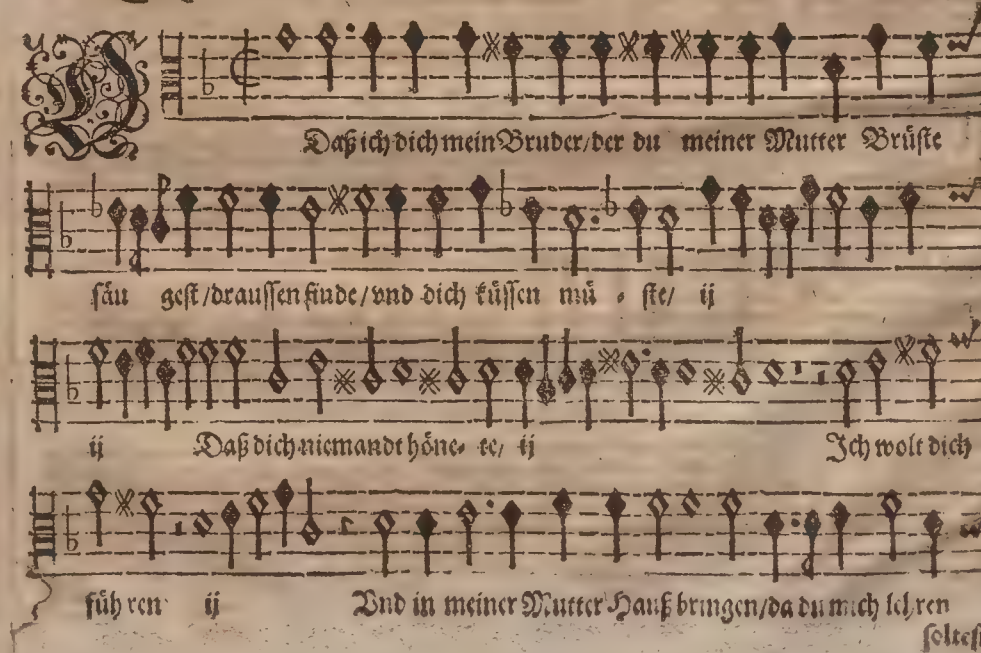 Daß ich dich mein Bruder/der du meiner Mutter Brüste
säu gest/draussen finde/vnd dich küssen mü ste/ ij
ij Daß dich niemandt höne- te/ ij Ich wolt dich
füh ren ij Vnd in meiner Mutter Hauß bringen/da du mich lehren
soltest